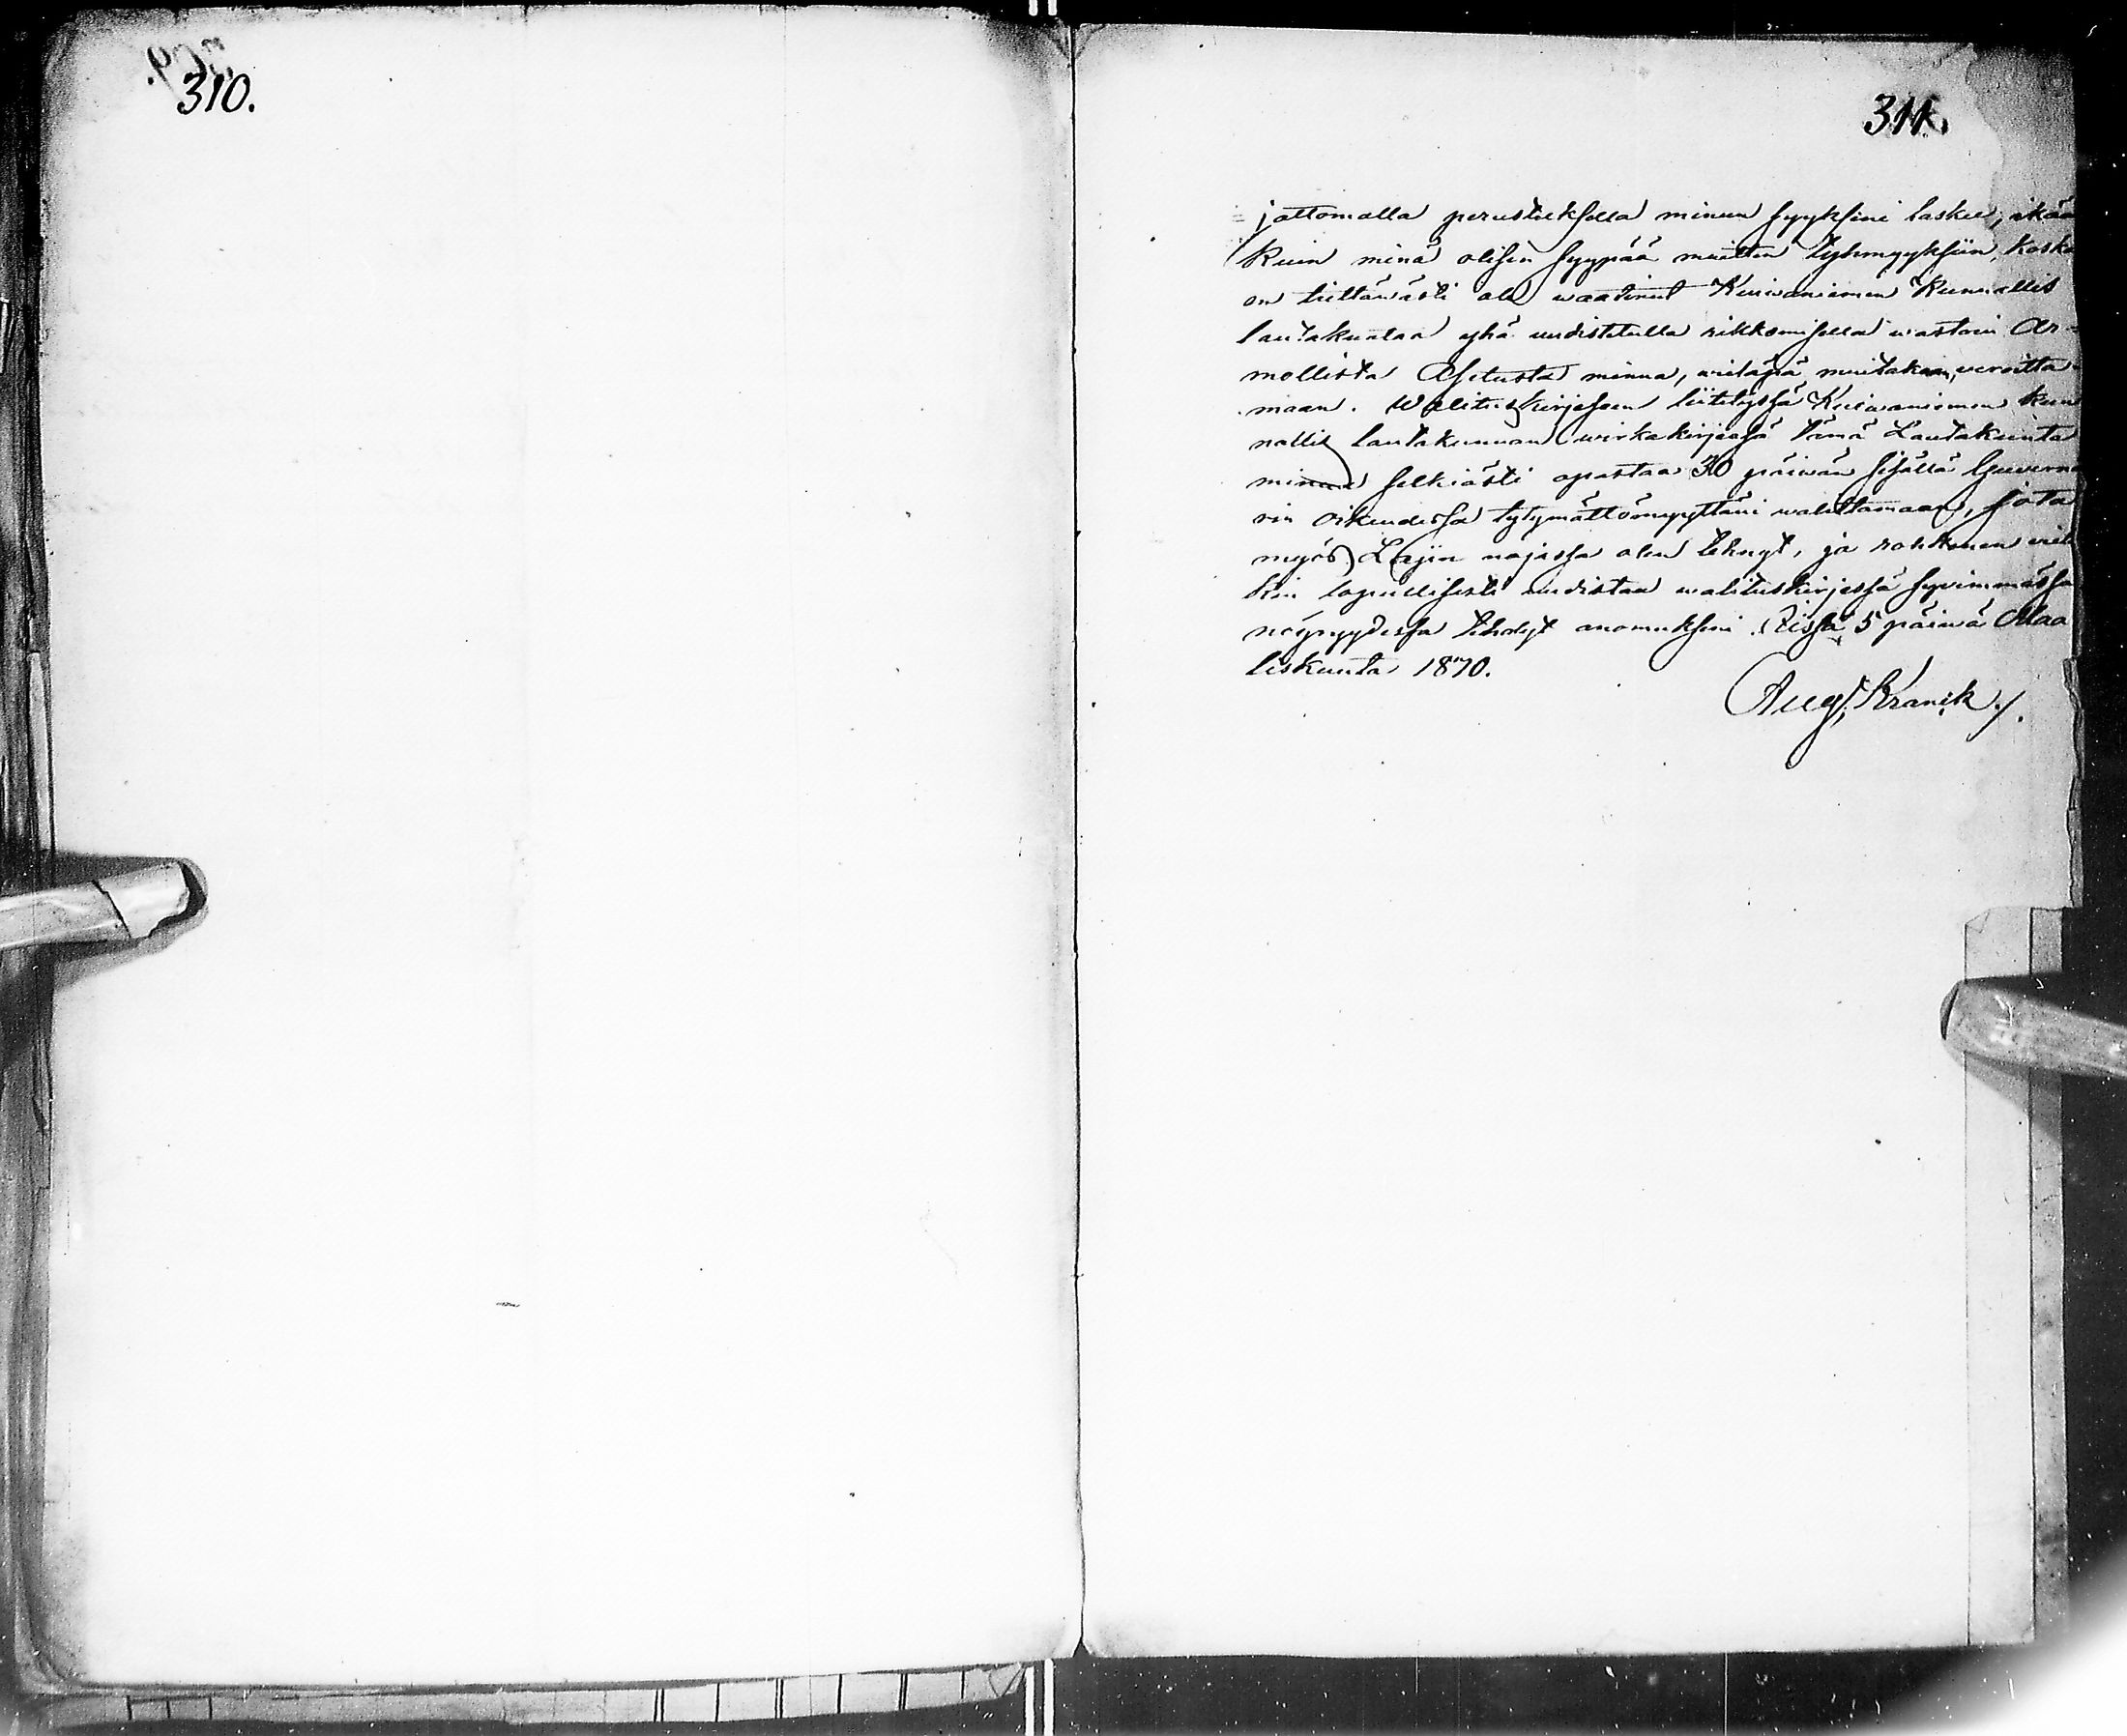 310.
311.
jattomalla perustuksella minun syykseni laskee, ikää
kuin minä olisin syypää muitten tyhmyyksiin, koska
en tiettäwästi ole waatinut Kuiwaniemen Kunnallis
lautakuntaa yhä uudistetulla rikkomisella wastoin Ar-
mollista Asetusta minua, wieläpä muitakaan, verotta-
maan. Walituskirjaseen liitetyssä Kuiwaniemen kun
nallis lautakunnan wirkakirjassa tämä Lautakunta
minua selkiästi opastaa 30 päiwän sisällä Guwernö
rin oikeudessa tytymättömyyttäni walittamaan, jota
myös Lajin najassa olen tehnyt, ja rohkenen wielä
kin lopullisesti uudistaa walituskirjassa sywimmässä
nöyryydessa tehdyt anomukseni. Iissä 5 päiwä Maa
liskuuta 1870.
Aug. Kranck /.